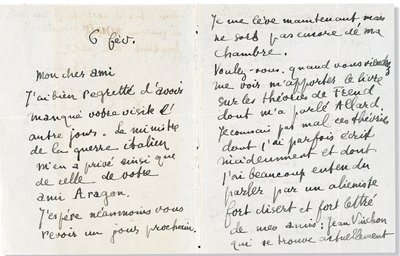 6 fév.
Mon cher ami
J'ai bien regretté d'avoir
manqué votre visite l'
autre jour. Le ministre
de la guerre italien
m'en a privé ainsi que
de celle de votre
ami Aragon.
J'espère néanmoins vous
revoir un jour prochain.
Je me lève maintenant mais
ne sors pas encore de ma
chambre.
Voulez-vous, quand vous viendrez
me voir m'apporter le livre
sur les théories de Freud
dont m'a parlé Allard.
Je connais pas mal ces théories
dont j'ai parfois écrit
incidemment et dont
j'ai beaucoup entendu
parler par un aliéniste
fort disert et fort lettré
de mes amis: Jean Vinchon
qui se trouve actuellement